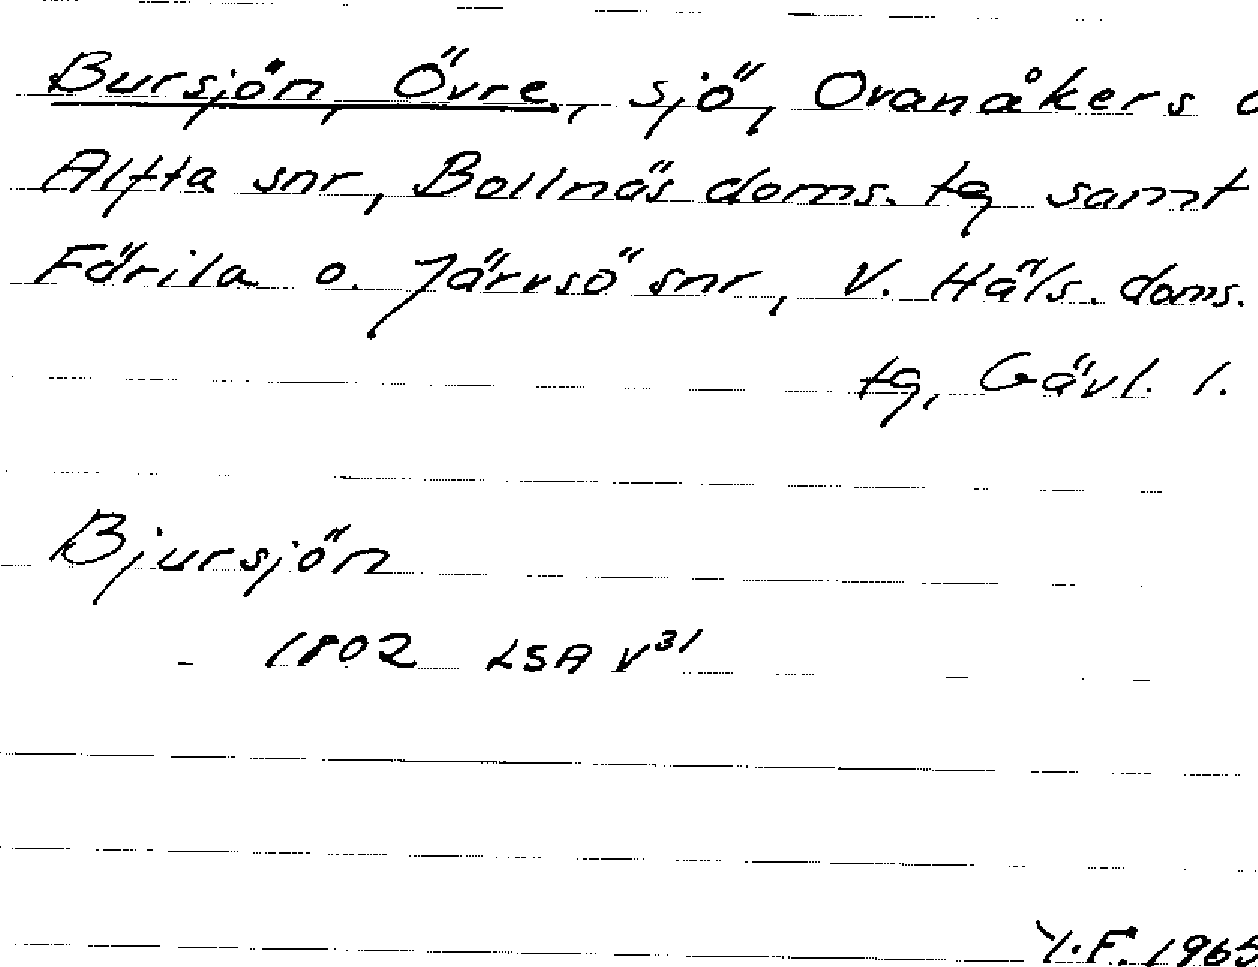 Bursjön, Övre, sjö, Ovanåkers o
Alfta snr, Bollnäs doms. tg samt
Färila o. Järvsö snr, V. Häls. doms.
tg, Gävl. l.
Bjursjön
- 1802 LSA V31
Y.F. 1965